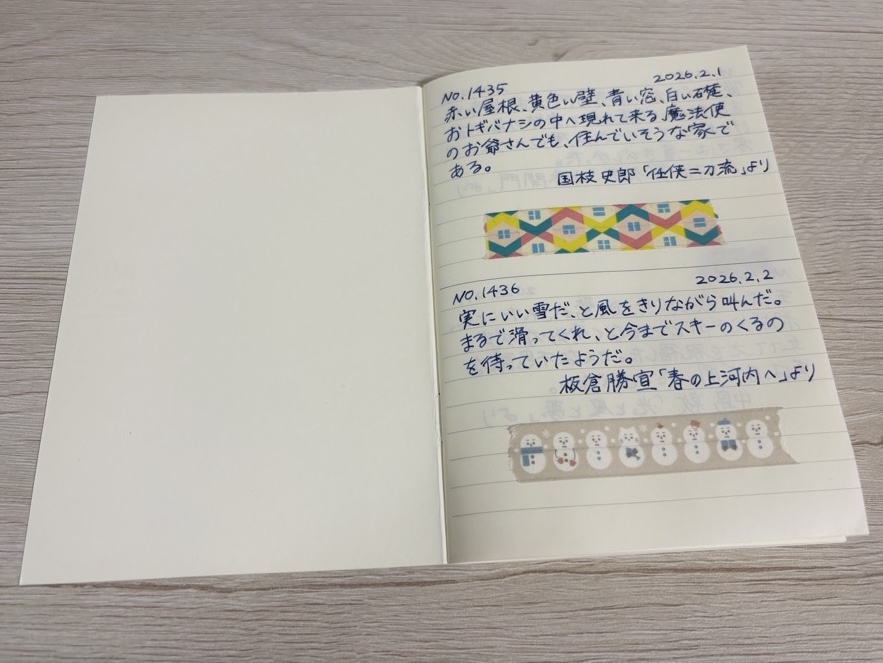 NO.1435 2026.2.1
赤い屋根、黄色い壁、青い窓、白い礎、
おトギバナシの中へ現れて来る魔法使
のお爺さんでも、住んでいそうな家で
ある。
国枝史郎「任侠二刀流」より
NO.1436 2026.2.2
実にいい雪だ、と風をきりながら叫んだ。
まるで滑ってくれ、と今までスキーのくるの
を待っていたようだ。
板倉勝宣「春の上河内へ」より